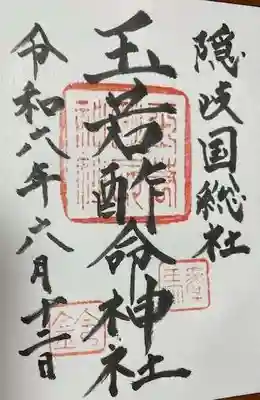 隠岐国総社
玉若酢命神社
令和六年六月十二日